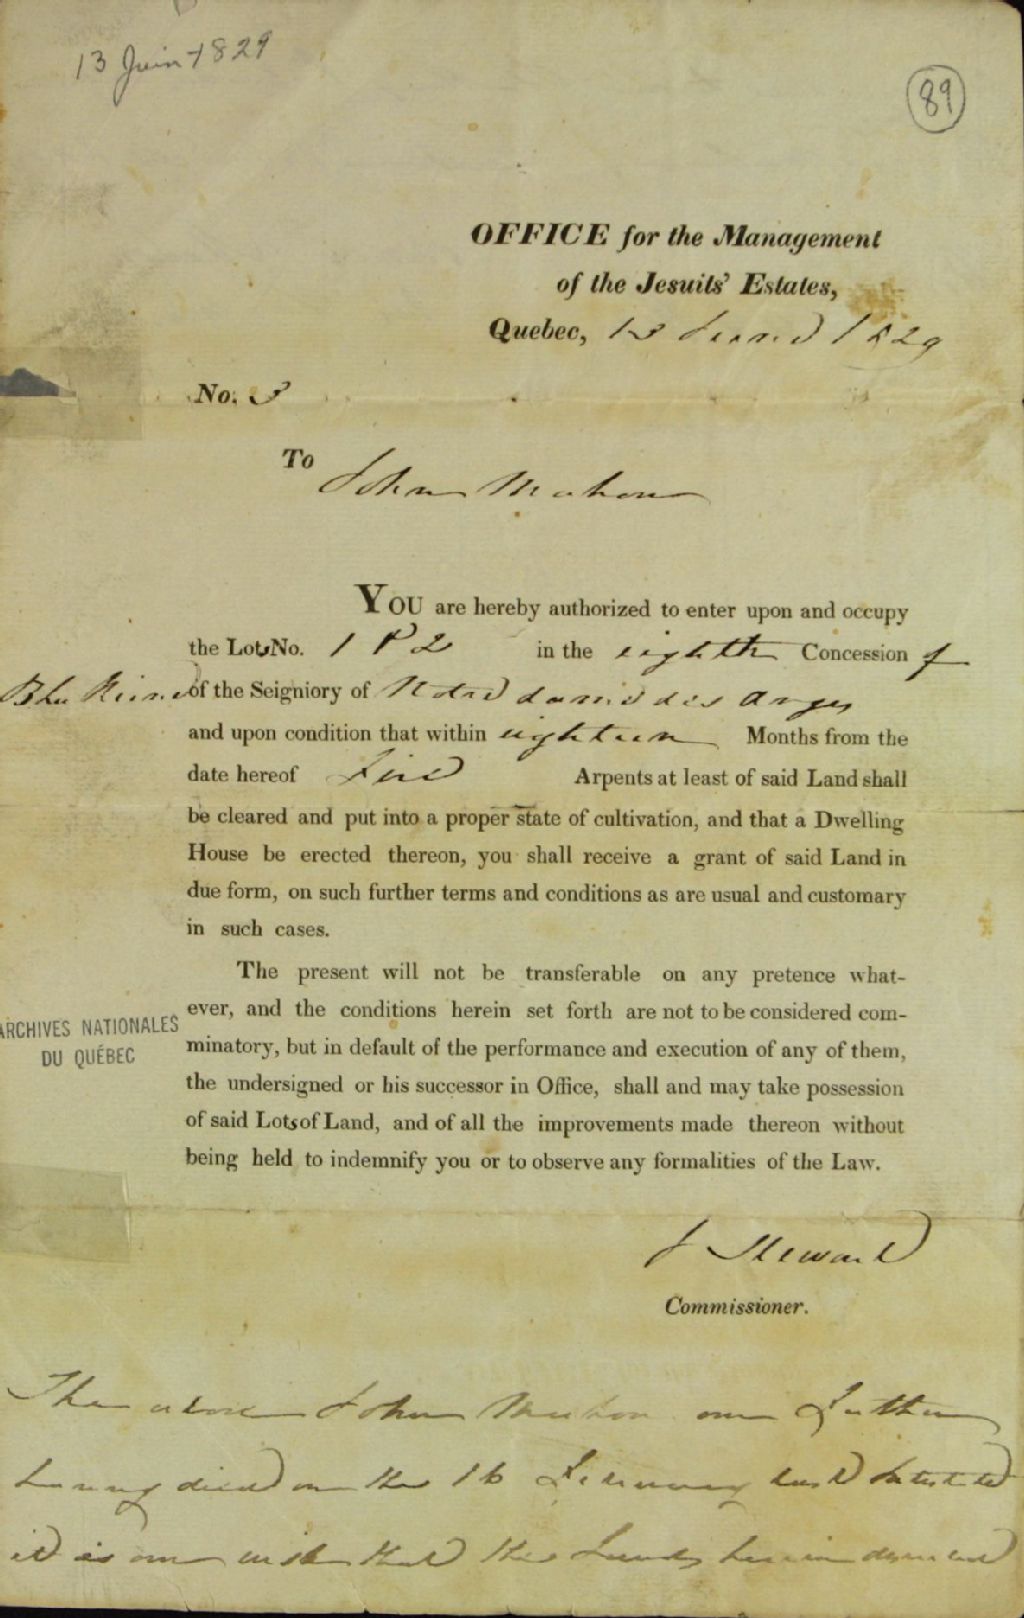 13 Juin 1829
89
OFFICE for the Management
of the Jesuits' Estates,
Quebec, 13 June 1829
No. 3
To
John Mahon
YOU are hereby authorized to enter upon and occupy
the Lots No. 1 & 2 in the eighth Concession of
of the Seigniory of Notre dame des Anges
and upon condition that within eighteen Months from the
date hereof five Arpents at least of said Land shall
be cleared and put into a proper state of cultivation, and that a Dwelling
House be erected thereon, you shall receive a grant of said Land in
due form, on such further terms and conditions as are usual and customary
in such cases.
The present will not be transferable on any pretence what-
ever, and the conditions herein set forth are not to be considered com-
minatory, but in default of the performance and execution of any of them,
the undersigned or his successor in Office, shall and may take possession
of said Lots of Land, and of all the improvements made thereon without
being held to indemnify you or to observe any formalities of the Law.
ARCHIVES NATIONALES
DU QUÉBEC
J Stewart
Commissioner.
The above John Mahon our Father
having died on the 16 February last Intestate
it is our wish that the Lands herein described